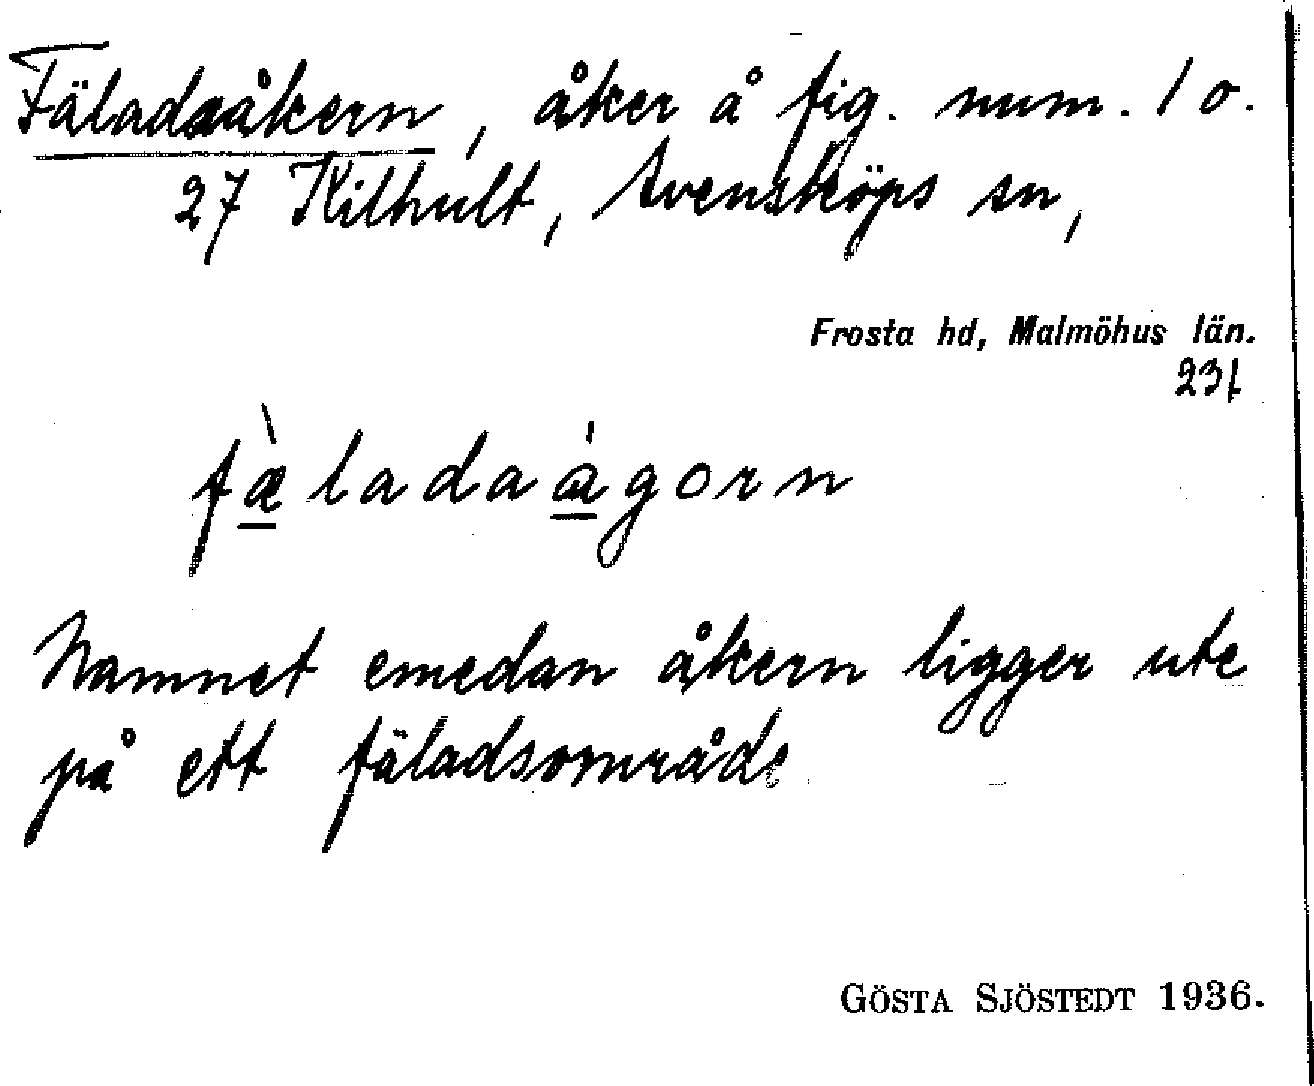 Fäladaåkern, åker å fig. num. 1 o.
27 Kilhult, Svensköps sn,
Frosta hd, Malmöhus län.
231
fæ̀ladaágorn
Namnet emedan åkern ligger ute
på ett fäladsområde
GÖSTA SJÖSTEDT 1936.